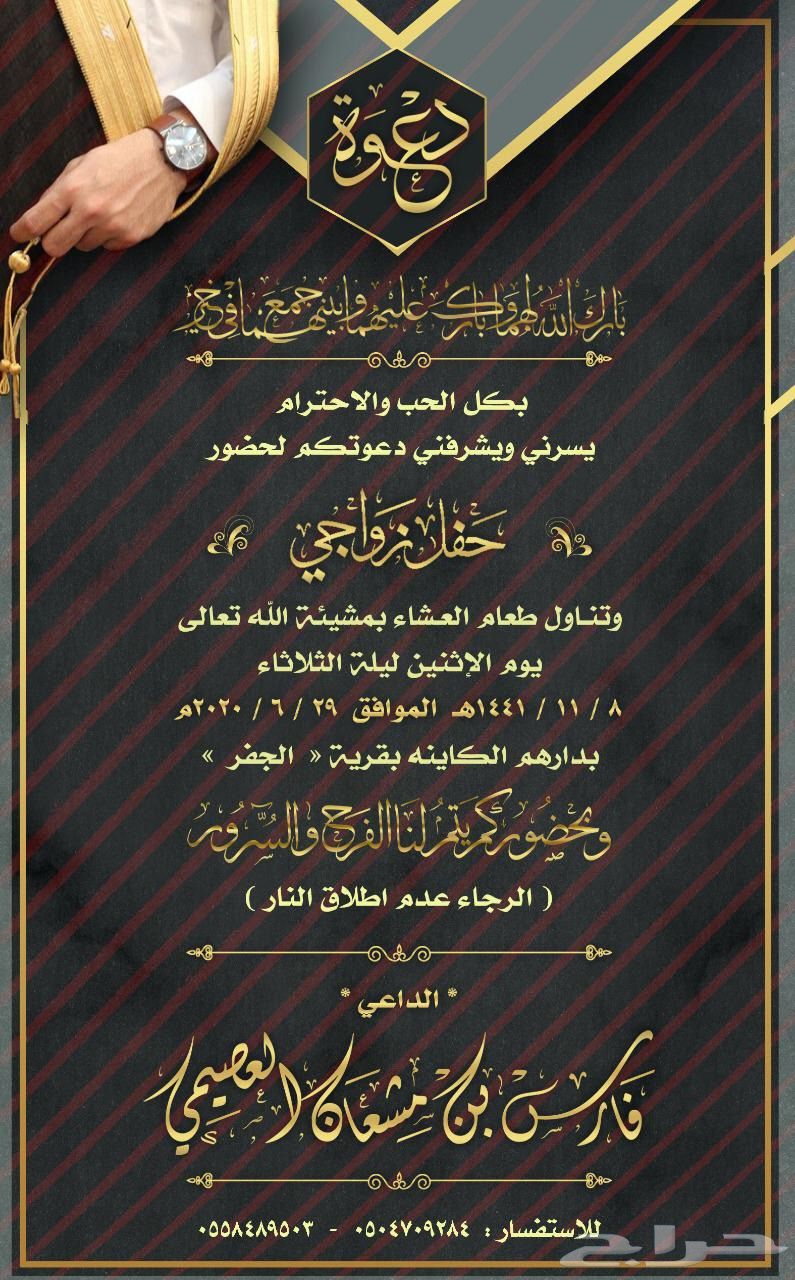 دعوة
بارك الله لهما وبارك عليهما وجمع بينهما في خير
بكل الحب والاحترام
يسرني ويشرفني دعوتكم لحضور
حفل زواجي
وتناول طعام العشاء بمشيئة الله تعالى
يوم الإثنين ليلة الثلاثاء
٨ / ١١ / ١٤٤١هـ الموافق ٢٩ / ٦ / ٢٠٢٠م
بدارهم الكاينه بقرية « الجفر »
وبحضوركم يتم لنا الفرح والسرور
( الرجاء عدم اطلاق النار )
* الداعي *
فارس بن مشعان العصيمي
للاستفسار : ٠٥٠٤٧٠٩٢٨٤ - ٠٥٥٨٤٨٩٥٠٣
حراج